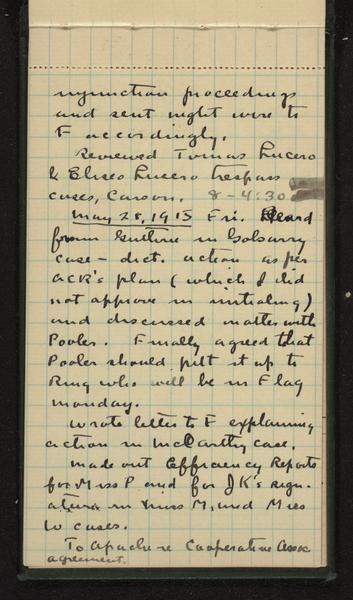 injunction proceedings
and sent night wire to
F accordingly.
Reviewed Tomas Lucero
& Eliseo Lucero trespass
cases, Carson. 8-4:30
May 28, 1915 Fri. Heard
from Guthrie in
case - dict. action as per
ACR's plan (which I did
not approve in initialing)
and discussed matter with
Pooler. Finally agreed that
Pooler should put it up to
Ring who will be in Flag
Monday.
Wrote letter to F explaining
action in McCarthy case.
Made out Efficiency Reports
for Miss P and for JK's sign-
ature in Miss M, and Miss
W cases.
To Apache re Cooperative Assoc
agreement.